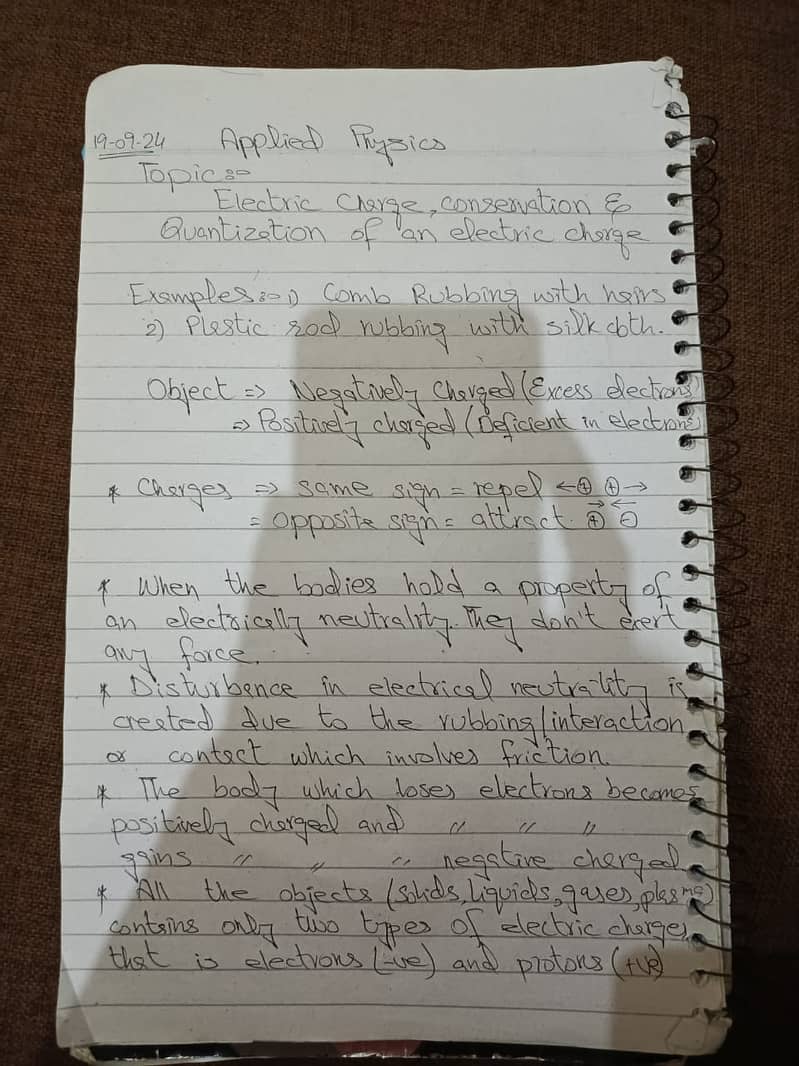 19-09-24 Applied Physics
Topic:-
Electric Charge, conservation &
Quantization of an electric charge
Examples:- 1) Comb Rubbing with hairs
2) Plastic rod rubbing with silk cloth.
Object => Negatively Charged (Excess electrons)
=> Positively charged (Deficient in electrons)
* Charges => same sign = repel ←⊕ ⊕→
= opposite sign = attract. ⊕→ ←⊖
* When the bodies hold a property of
an electrically neutrality. They don't exert
any force.
* Disturbance in electrical neutrality is
created due to the rubbing/interaction
or contact which involves friction.
* The body which loses electrons becomes
positively charged and " " "
gains " " " negative charged.
* All the objects (solids, liquids, gases, plasma)
contains only two types of electric charges,
that is electrons (-ve) and protons (+ve)